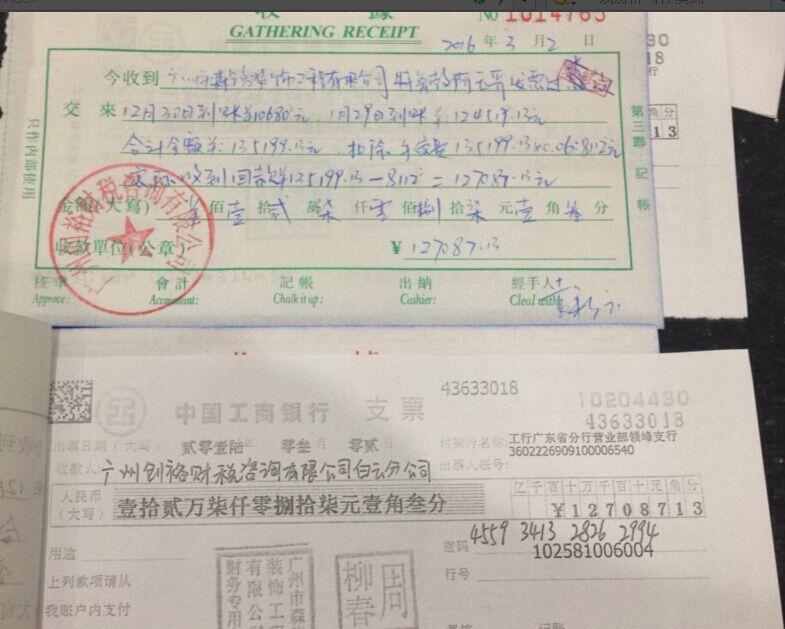 收 據
GATHERING RECEIPT
No 1014785
2016 年 3 月 2 日
今收到 装饰工程有限公司
交 來 12月30日到账￥10680元, 1月29日到账￥: 124519.13元
合计金额￥: 135199.13元, 扣除 135199.13×0.06=8112元
实际收到回款￥135199.13-8112=127087.13元
金額(大寫) 佰 壹 拾 贰 萬 柒 仟 零 佰 捌 拾 柒 元 壹 角 叁 分
收款單位(公章) ¥ 127087.13
核準 會計 記帳 出納 經手人
Approve: Accountant: Chalk it up: Cashier: Cleal with:
只作内部使用
第三聯 記帳
财税咨询有限公司
30
18
行
角 分
13
43633018
10204430
中国工商银行 支票
43633018
出票日期(大写) 贰零壹陆 年 零叁 月 零贰 日
付款行名称: 工行广东省分行营业部领峰支行
3602226909100006540
收款人: 广州创裕财税咨询有限公司白云分公司
出票人账号:
人民币(大写) 壹拾贰万柒仟零捌拾柒元壹角叁分
亿 千 百 十 万 千 百 十 元 角 分
¥12708713
4559 3413 2826 2994
密码 102581006004
用途
行号
上列款项请从
我账户内支付
广州市森
装饰工程
有限公司
财务专用
柳春